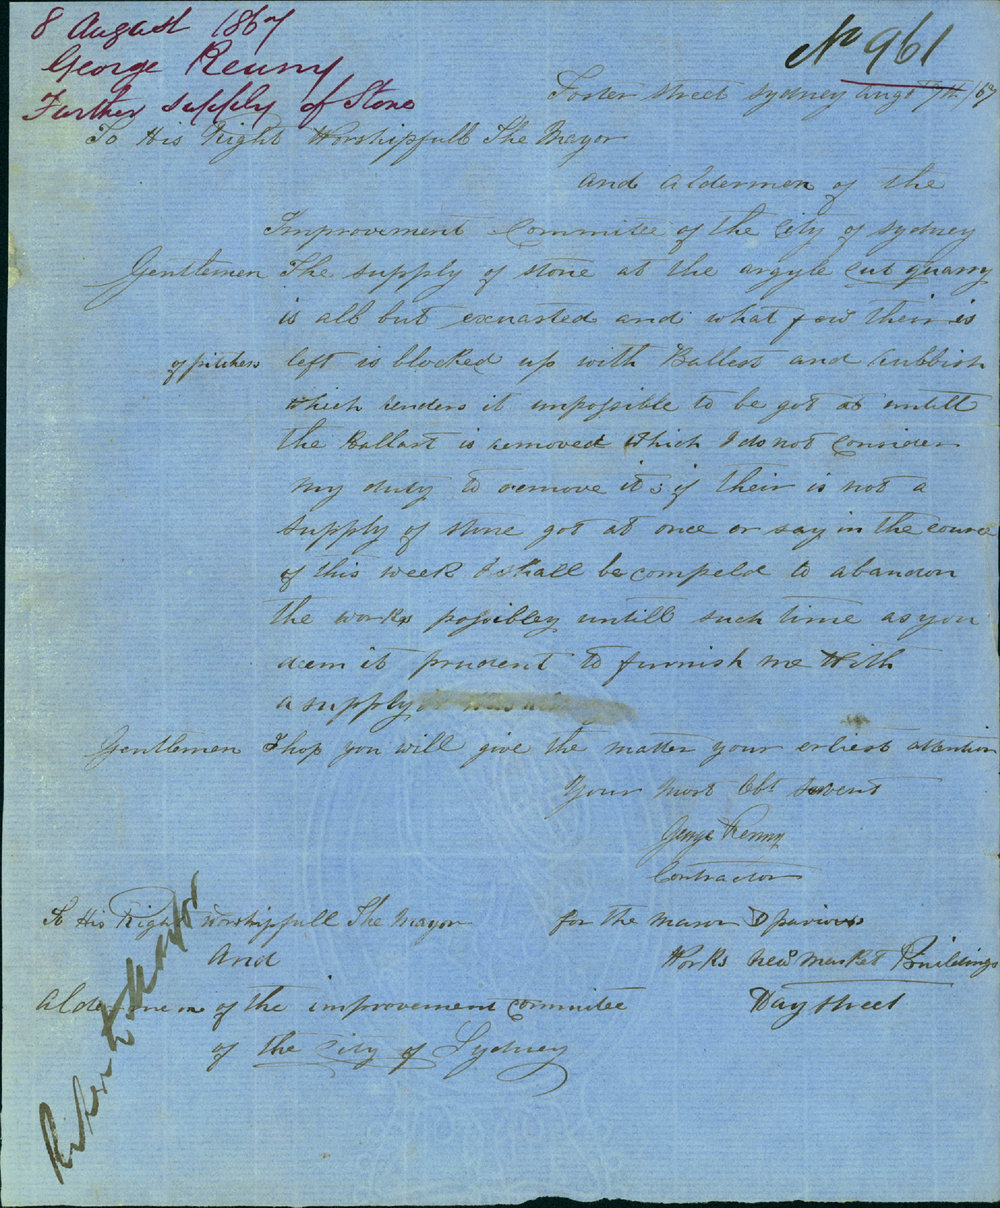 8 August 1867
George Renny
Further supply of Stone
No 961
Foster street Sydney Augt 7th / 67
To His Right Worshipfull The Mayor
and Aldermen of the
Improvement Committee of the City of Sydney
Gentlemen The supply of stone at the argyle cut quarry
is all but exuasted and what few their is
of pitchers left is blocked up with Ballast and Rubbish
which renders it impossible to be got at untill
the Ballast is removed which I do not consider
my duty to remove it & if their is not a
supply of stone got at once or say in the course
of this week I shall be compeld to abandon
the works possibley untill such time as you
deem it prudent to furnish me with
a supply
Gentlemen I hop you will give the matter your erliest attention
Your most Obt servent
George Renny
Contractor
To His Right Worshipfull The Mayor
for the mason & paviors
And
Works new market Buildings
Aldermen of the improvement committee
Day street
of the City of Sydney